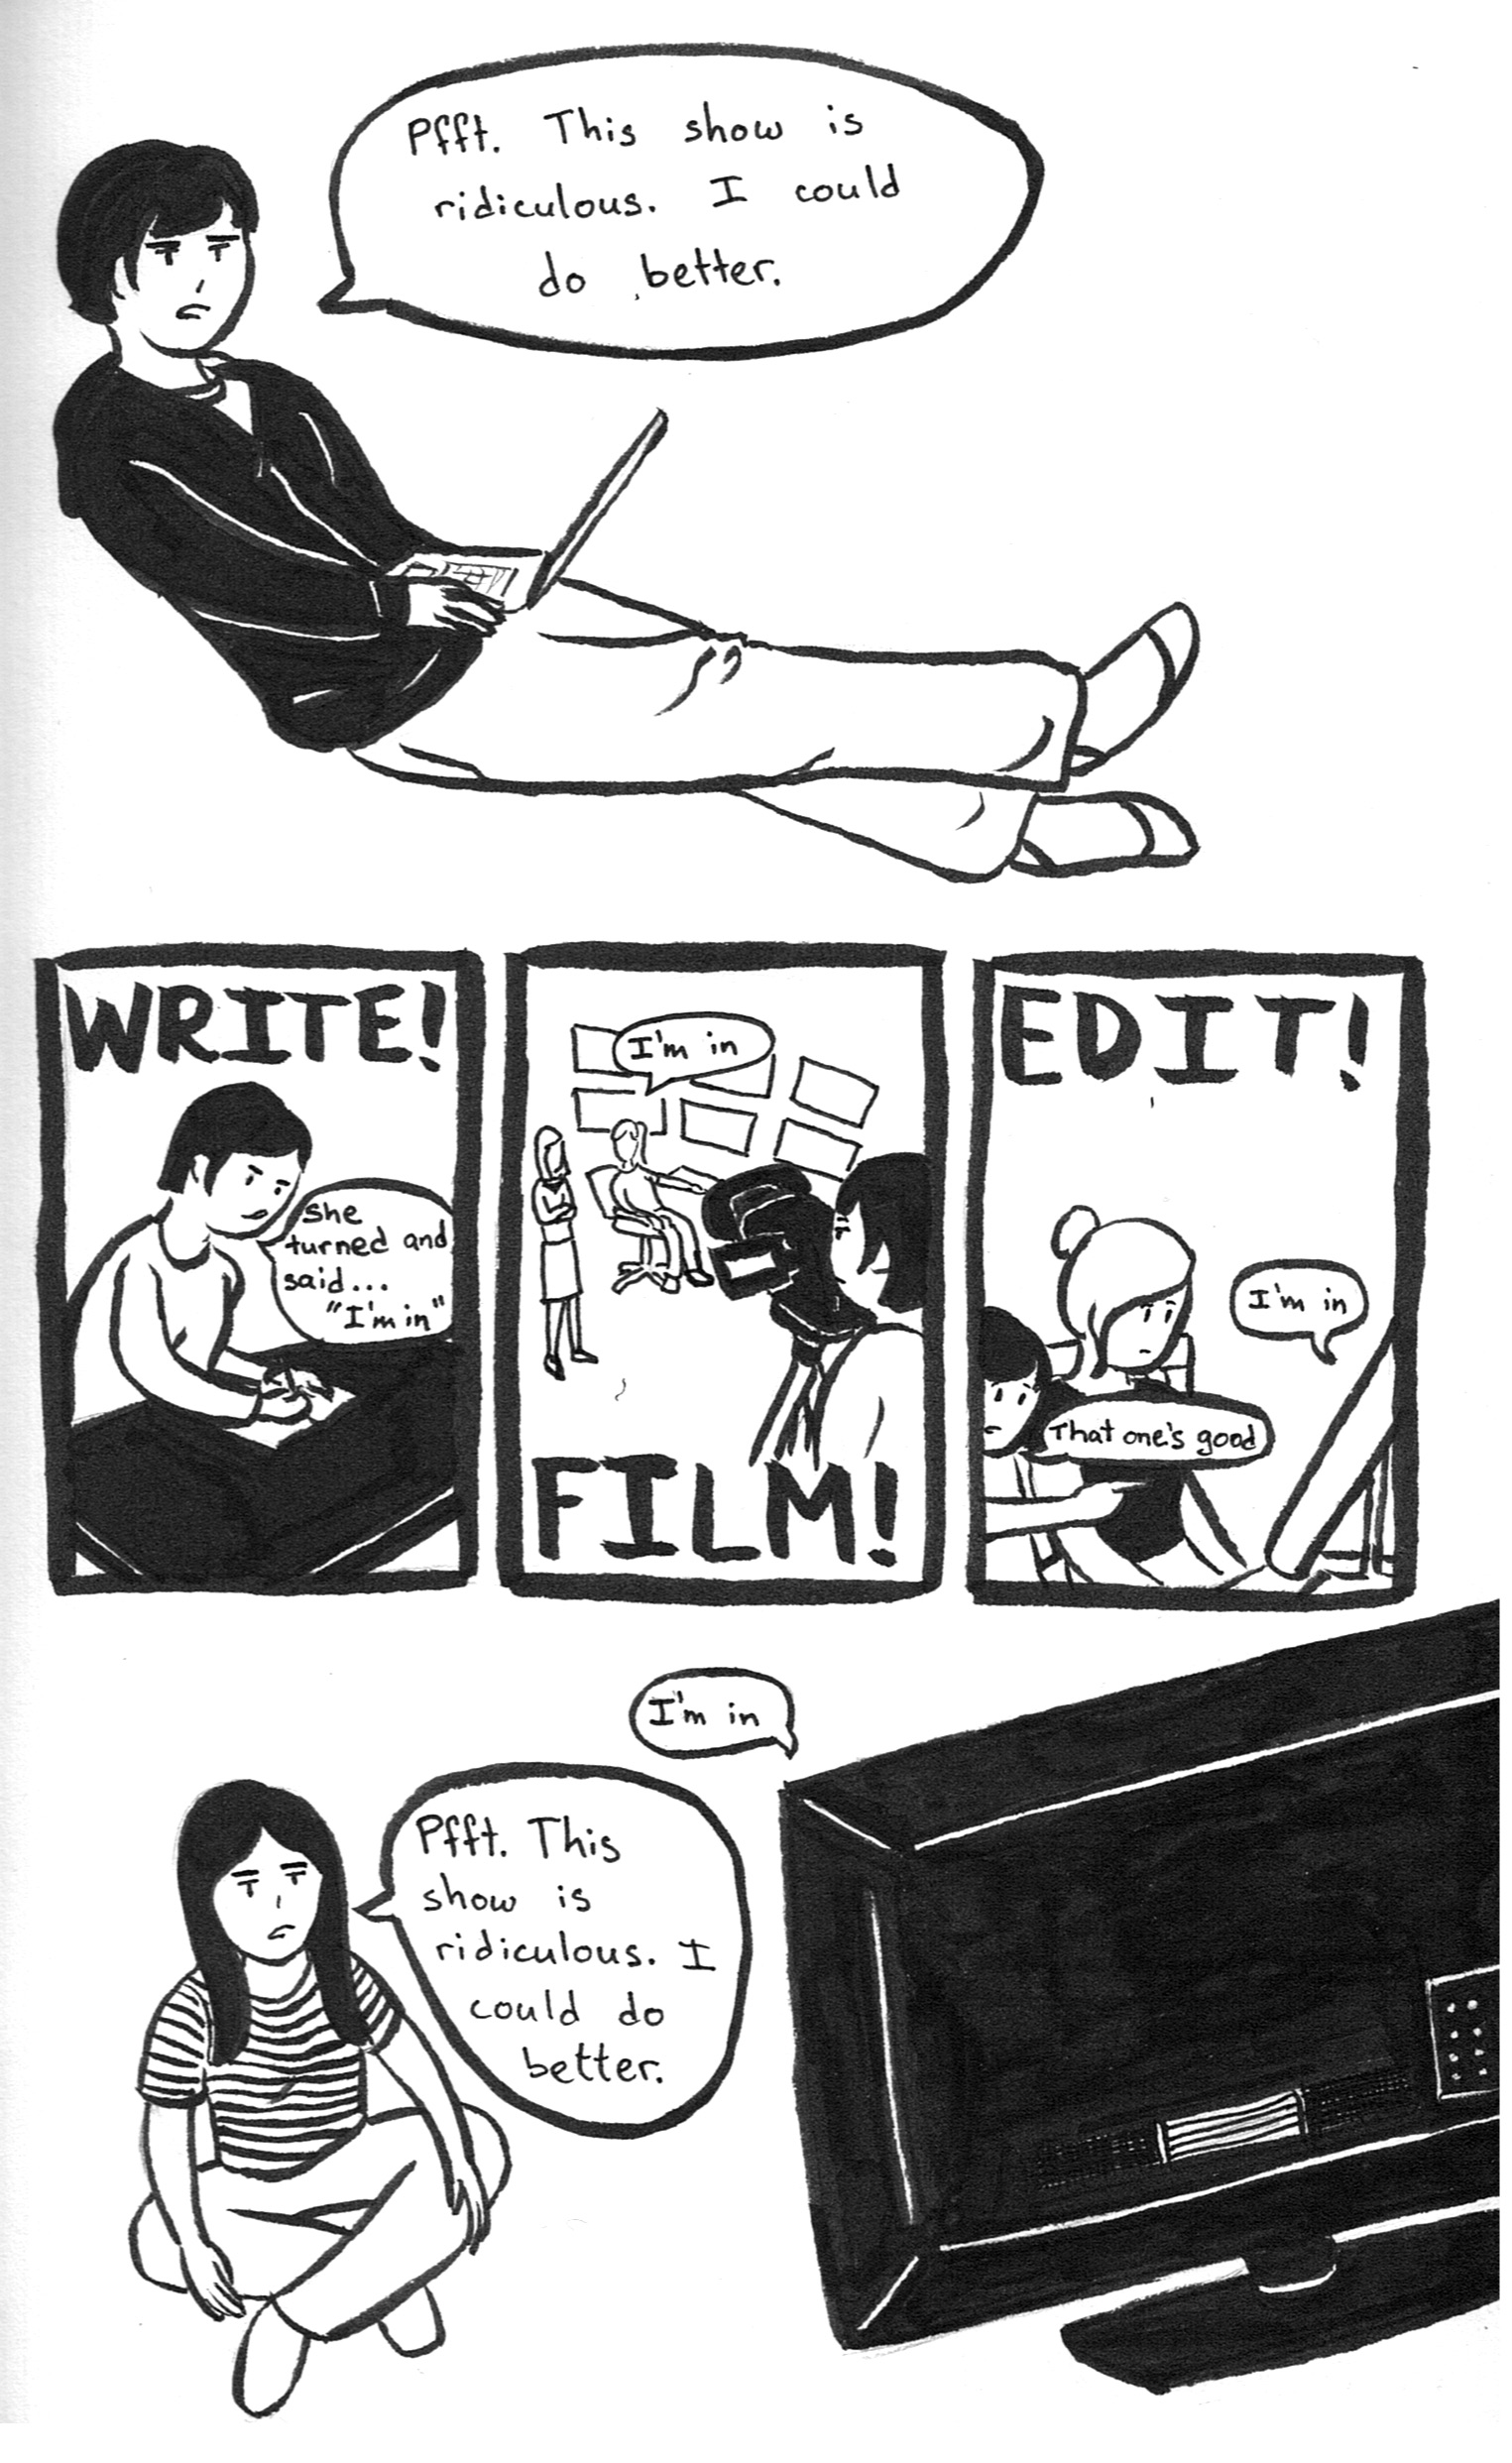 Pfft. This show is
ridiculous. I could
do better.
WRITE!
she
turned and
said...
"I'm in"
I'm in
FILM!
EDIT!
I'm in
That one's good
I'm in
Pfft. This
show is
ridiculous. I
could do
better.